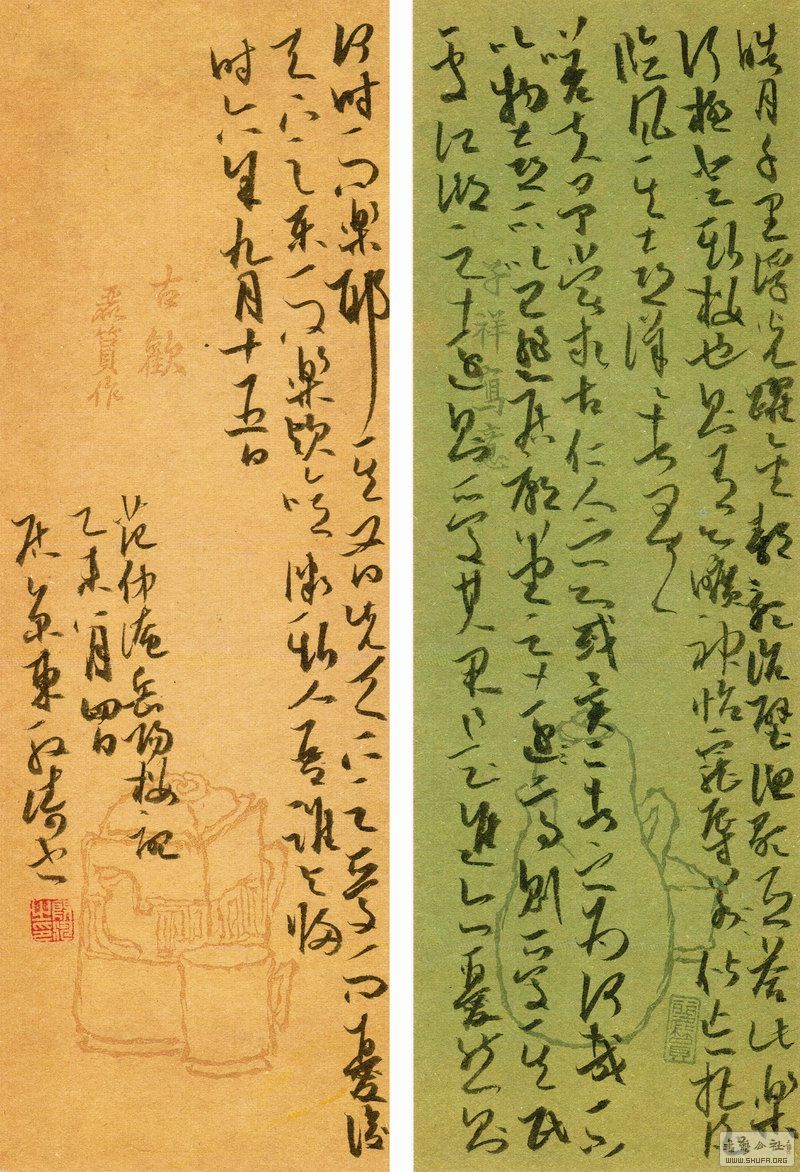 皓月千里浮光躍金静影沉璧漁歌互答此樂
何極登斯樓也則有心曠神怡寵辱偕忘把酒
臨風其喜洋洋者矣
嗟夫予嘗求古仁人之心或異二者之為何哉不
以物喜不以己悲居廟堂之高則憂其民
處江湖之遠則憂其君是進亦憂然則
子祥寫意
何時而樂耶其必曰先天下之憂而憂後
天下之樂而樂歟噫微斯人吾誰與歸
時六年九月十五日
古歡
范仲淹岳陽樓記
乙未八月四日
居京東
WWW.SHUFA.ORG